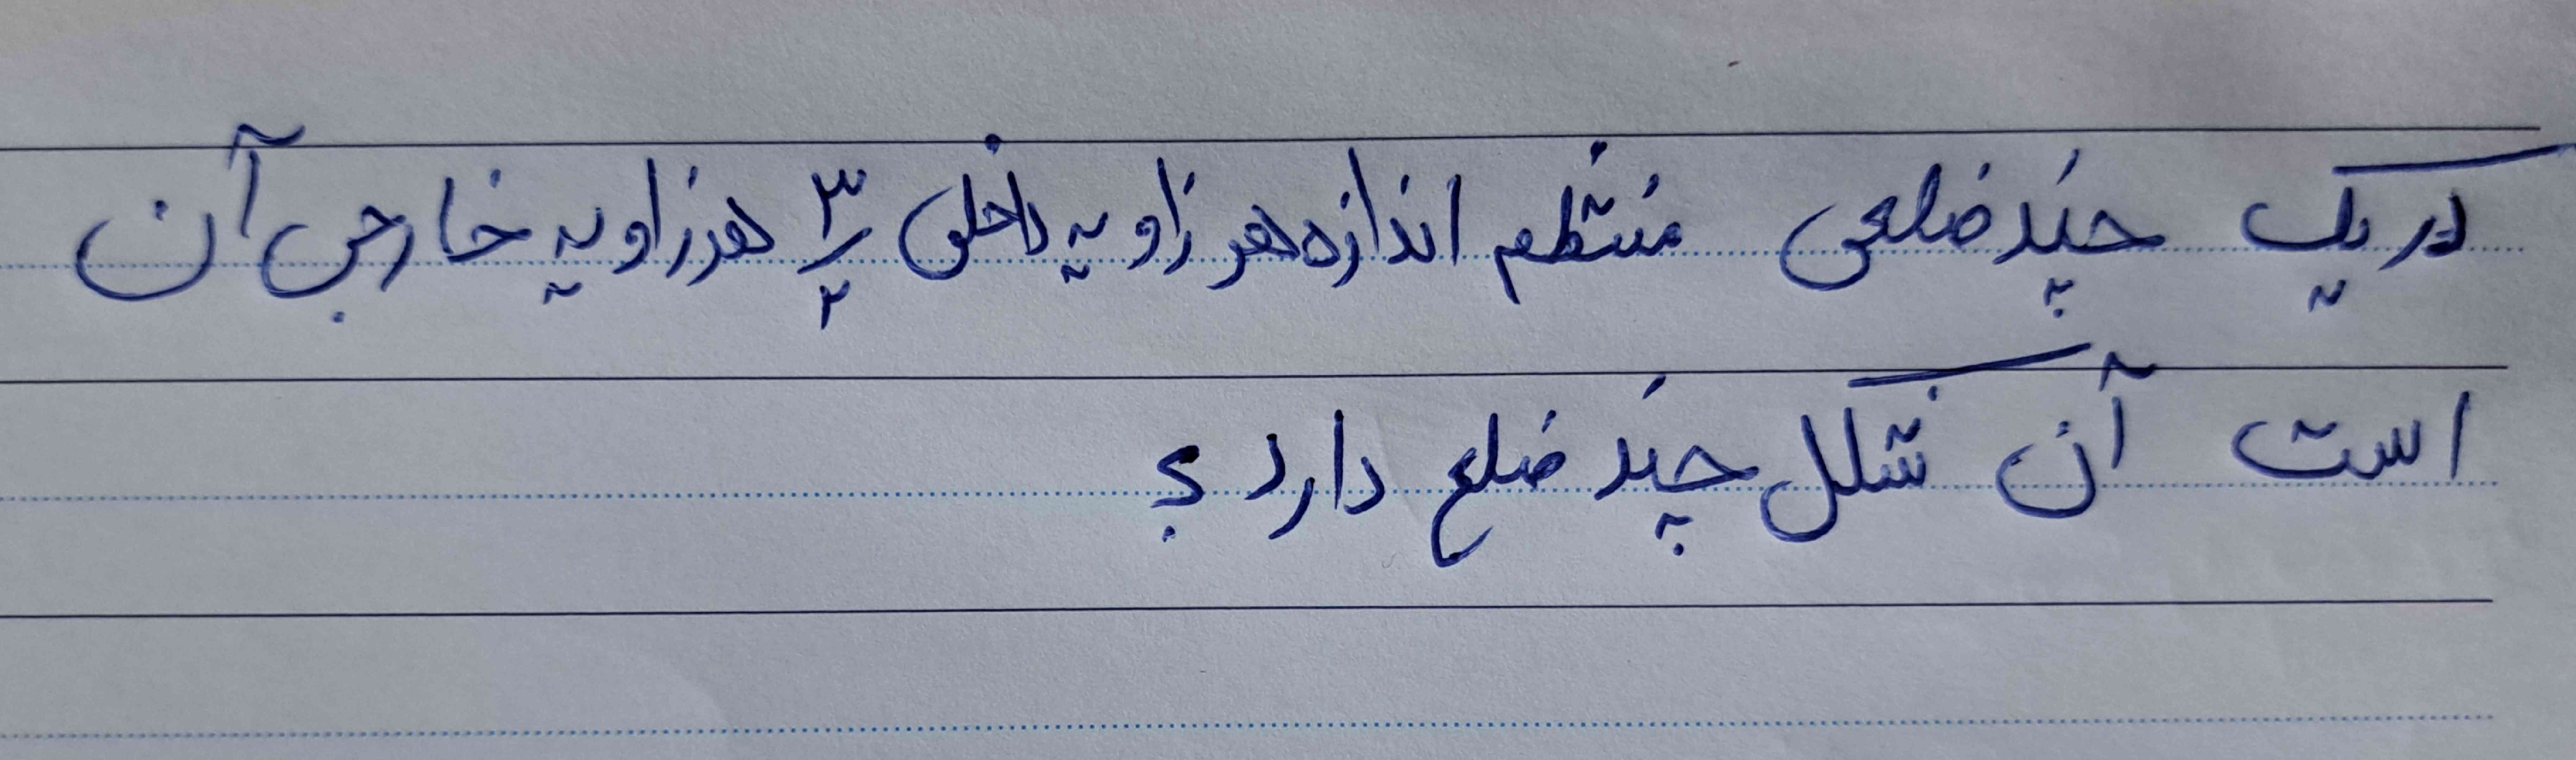 در یک چند ضلعی منتظم اندازه هر زاویه داخلی ۳/۲ هر زاویه خارجی آن
است آن شکل چند ضلع دارد؟